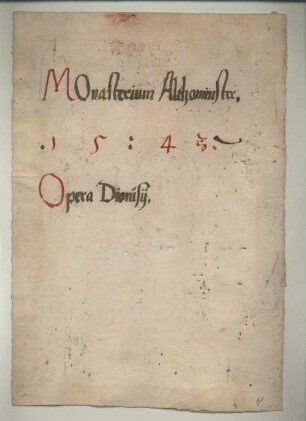 MOnasterium Althominster.
. 1 5 : 4 3.
Opera Dionisij.